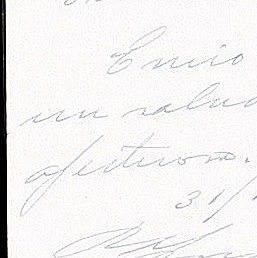 Envio
un salud
afectuoso.
31/